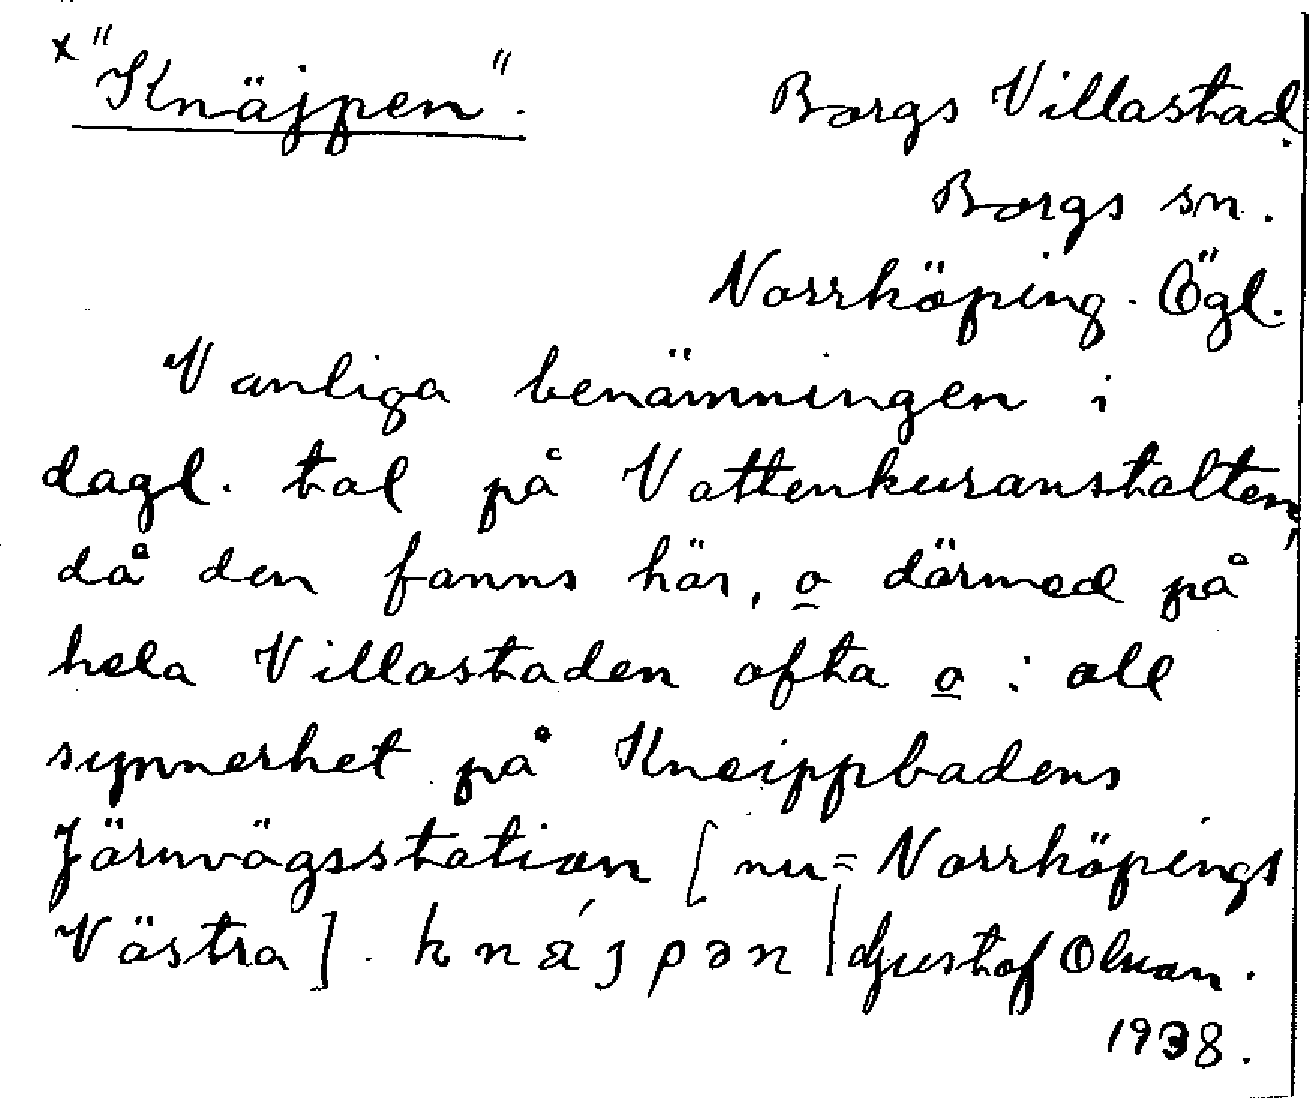 x "Knäjpen". Borgs Villastad.
Borgs sn.
Norrköping. Ögl.
Vanliga benämningen i
dagl. tal på Vattenkuranstalten,
då den fanns här, o därmed på
hela Villastaden ofta o i all
synnerhet på Kneippbadens
Järnvägsstation [nu = Norrköpings
Västra]. knä́jpən | Gustaf Olsson.
1938.